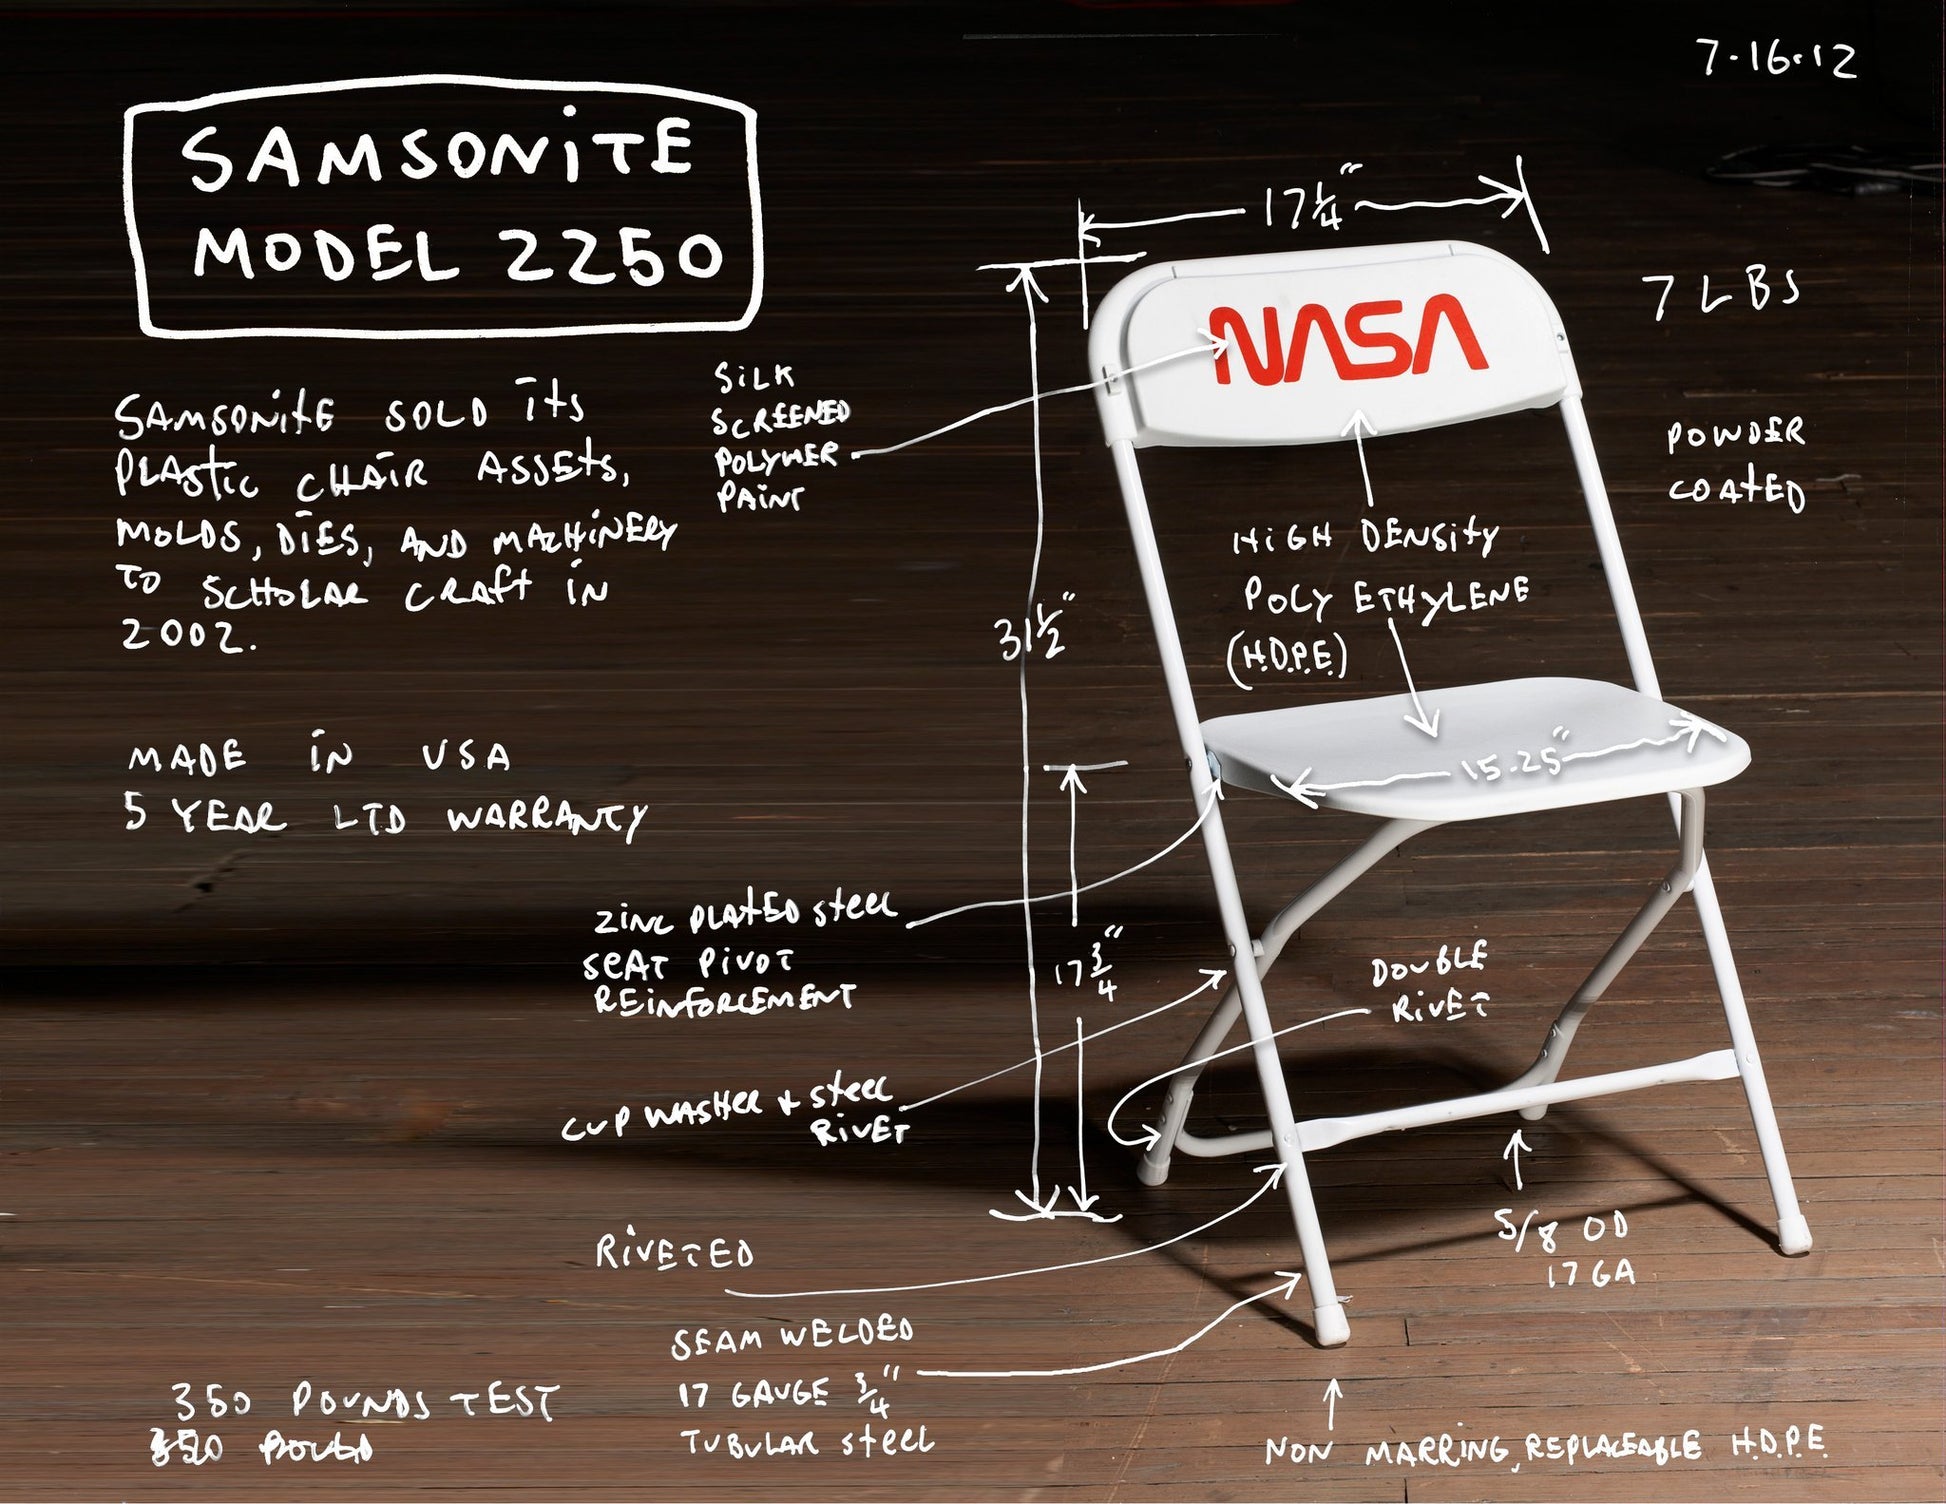 7·16·12
SAMSONiTE
MODEL 2250
17 1/4"
7 LBS
NASA
SiLK
SCREENED
POLYMER
PAiNT
POWDER
COATED
SAMSONiTE SOLD iTS
PLASTiC CHAiR ASSETS,
MOLDS, DiES, AND MACHiNERY
TO SCHOLAR CRAFT iN
2002.
HiGH DENSiTY
POLY ETHYLENE
(H.D.P.E.)
31 1/2"
15.25"
MADE iN USA
5 YEAR LTD WARRANTY
ZiNC PLATED STEEL
SEAT PiVOT
REiNFORCEMENT
17 3/4"
DOUBLE
RiVET
CUP WASHER + STEEL
RiVET
RiVETED
5/8 OD
17 GA
SEAM WELDED
17 GAUGE 3/4"
TUBULAR STEEL
350 POUNDS TEST
NON MARRING, REPLACEABLE H.D.P.E.